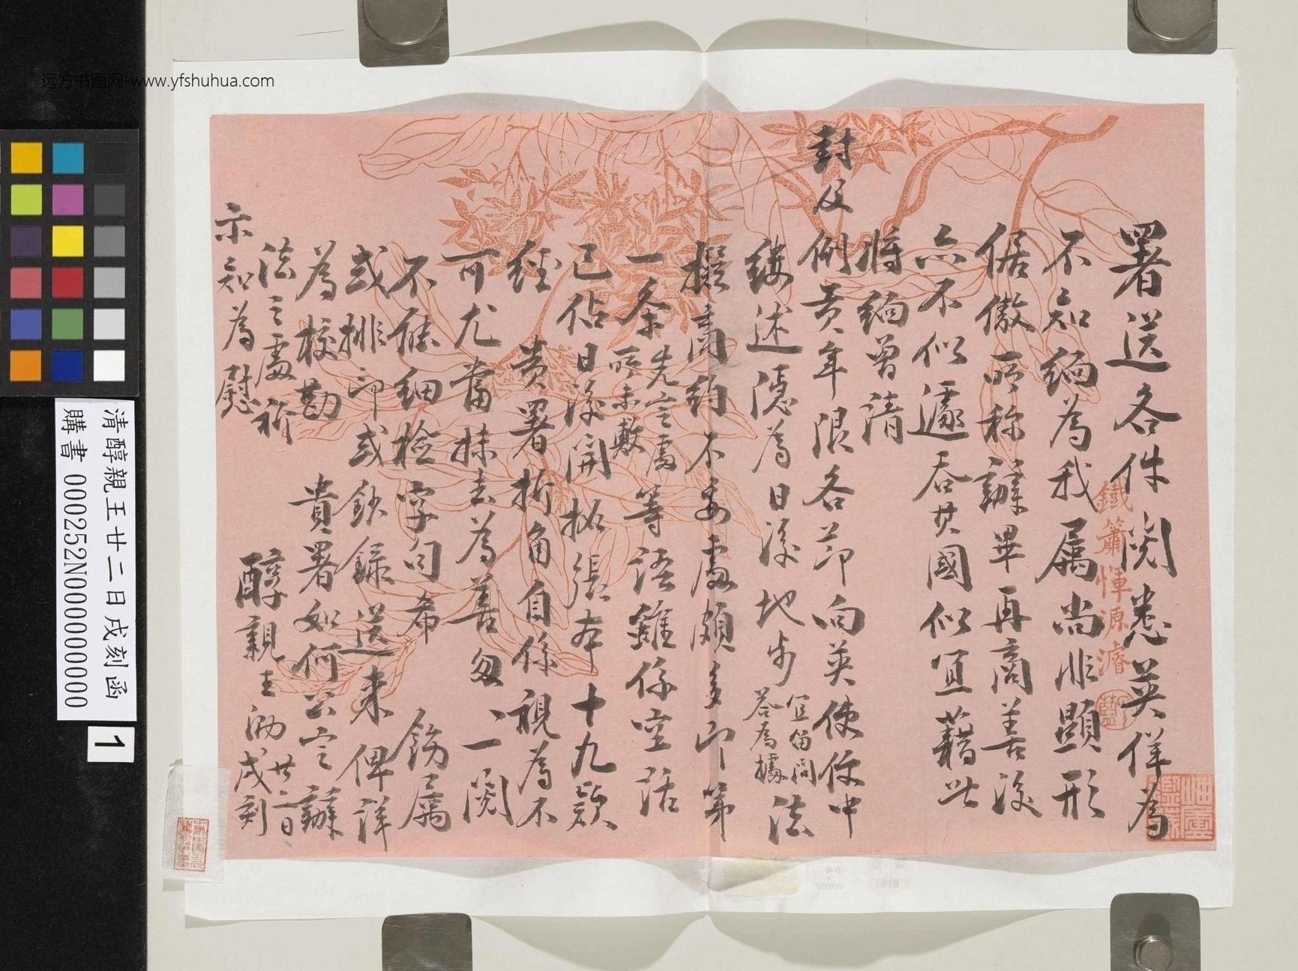 远方书画网-www.yfshuhua.com
署送各件閱悉英佯為
不知緬為我屬尚非顯形
倨傲所稱辦畢再商善後
亦不似遽吞其國似宜藉此
將緬曾請
封及例貢年限各節向英使作中
縷述隱為日後地步宜留問答為據法
擬商約不妥處頗多即第
一条先言處所未敷等語雖係空活
已佔日後開拓張本十九款
經貴署折角自係視為不
可尤當抹去為善匆匆一閱
不能細檢字句希飭屬
或排印或鈔錄送来俾詳
為校勘貴署如何公言辦
法之處祈
示知為慰
醇親王泐廿二日戌刻
鐵簫惲源濬
清醇親王廿二日戌刻函
購書 000252N000000000
1